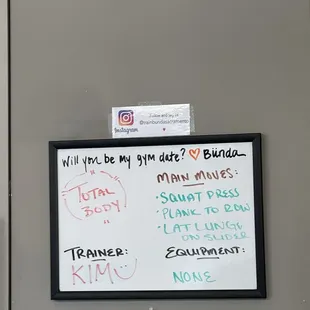 Instagram
Will you be my gym date? ♡ Bünda
TOTAL
BODY
MAIN MOVES:
· SQUAT PRESS
· PLANK TO ROW
· LAT LUNGE
ON SLIDER
TRAINER:
KIM
EQUIPMENT:
NONE